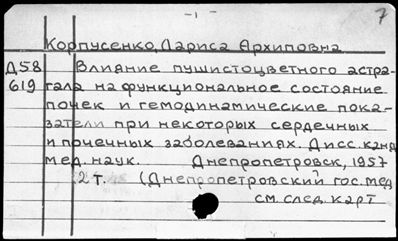 -1-
7
Корпусенко, Лариса Архиповна
Д58 Влияние пушистоцветного астра-
619 гала на функциональное состояние
почек и гемодинамические пока-
затели при некоторых сердечных
и почечных заболеваниях. Дисс. канд.
мед. наук. Днепропетровск, 1957
2 т. (Днепропетровский гос. мед
см. след. карт